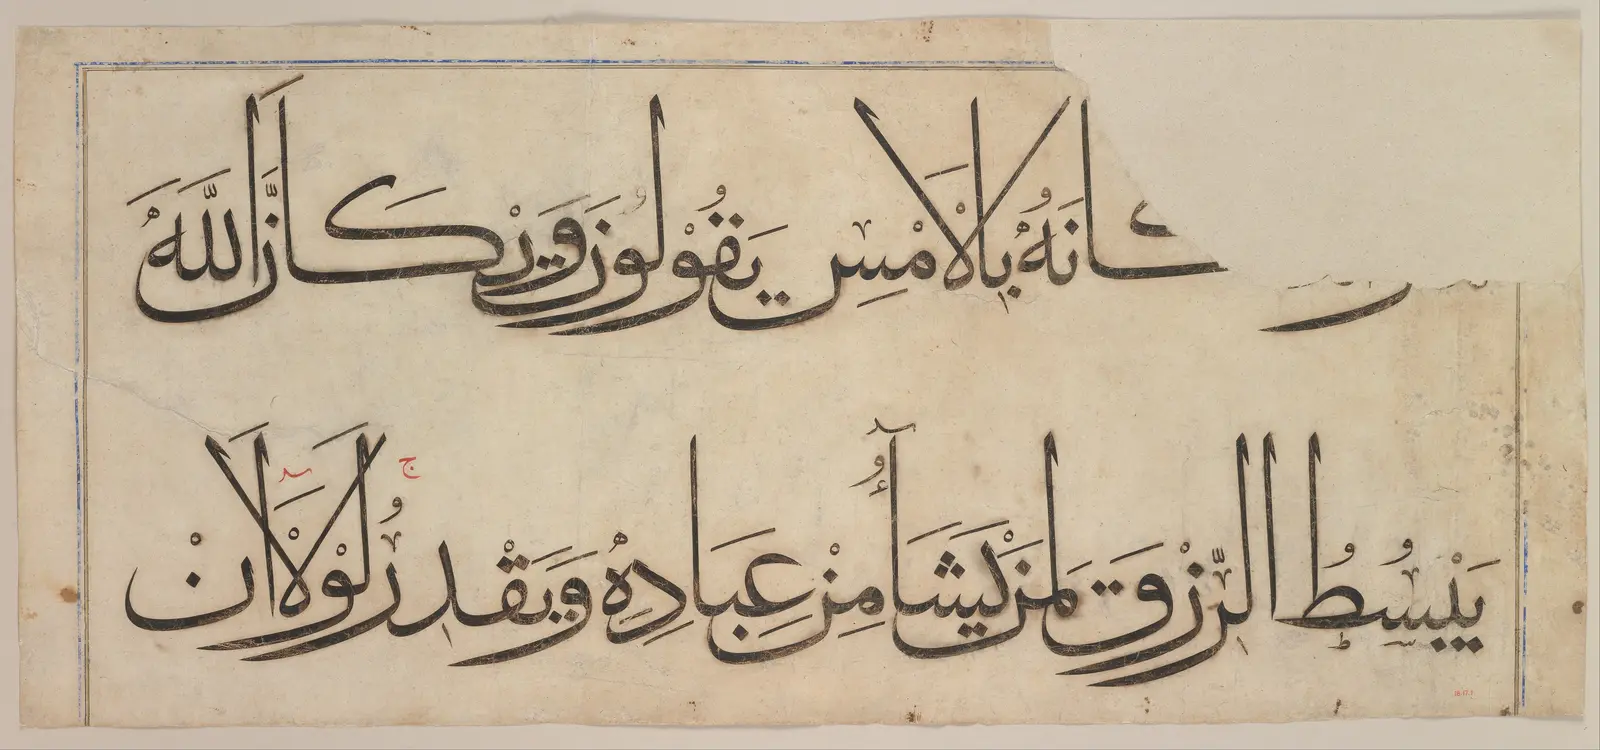 كَانَهُ بِالاَمْسِ يَقُوْلُوْنَ وَيْكَاَنَّ اللَّهَ
يَبْسُطُ الرِّزْقَ لِمَنْ يَشَآءُ مِنْ عِبَادِهِ وَيَقْدِرُ ج لَوْلَا اَنْ
18.17.1